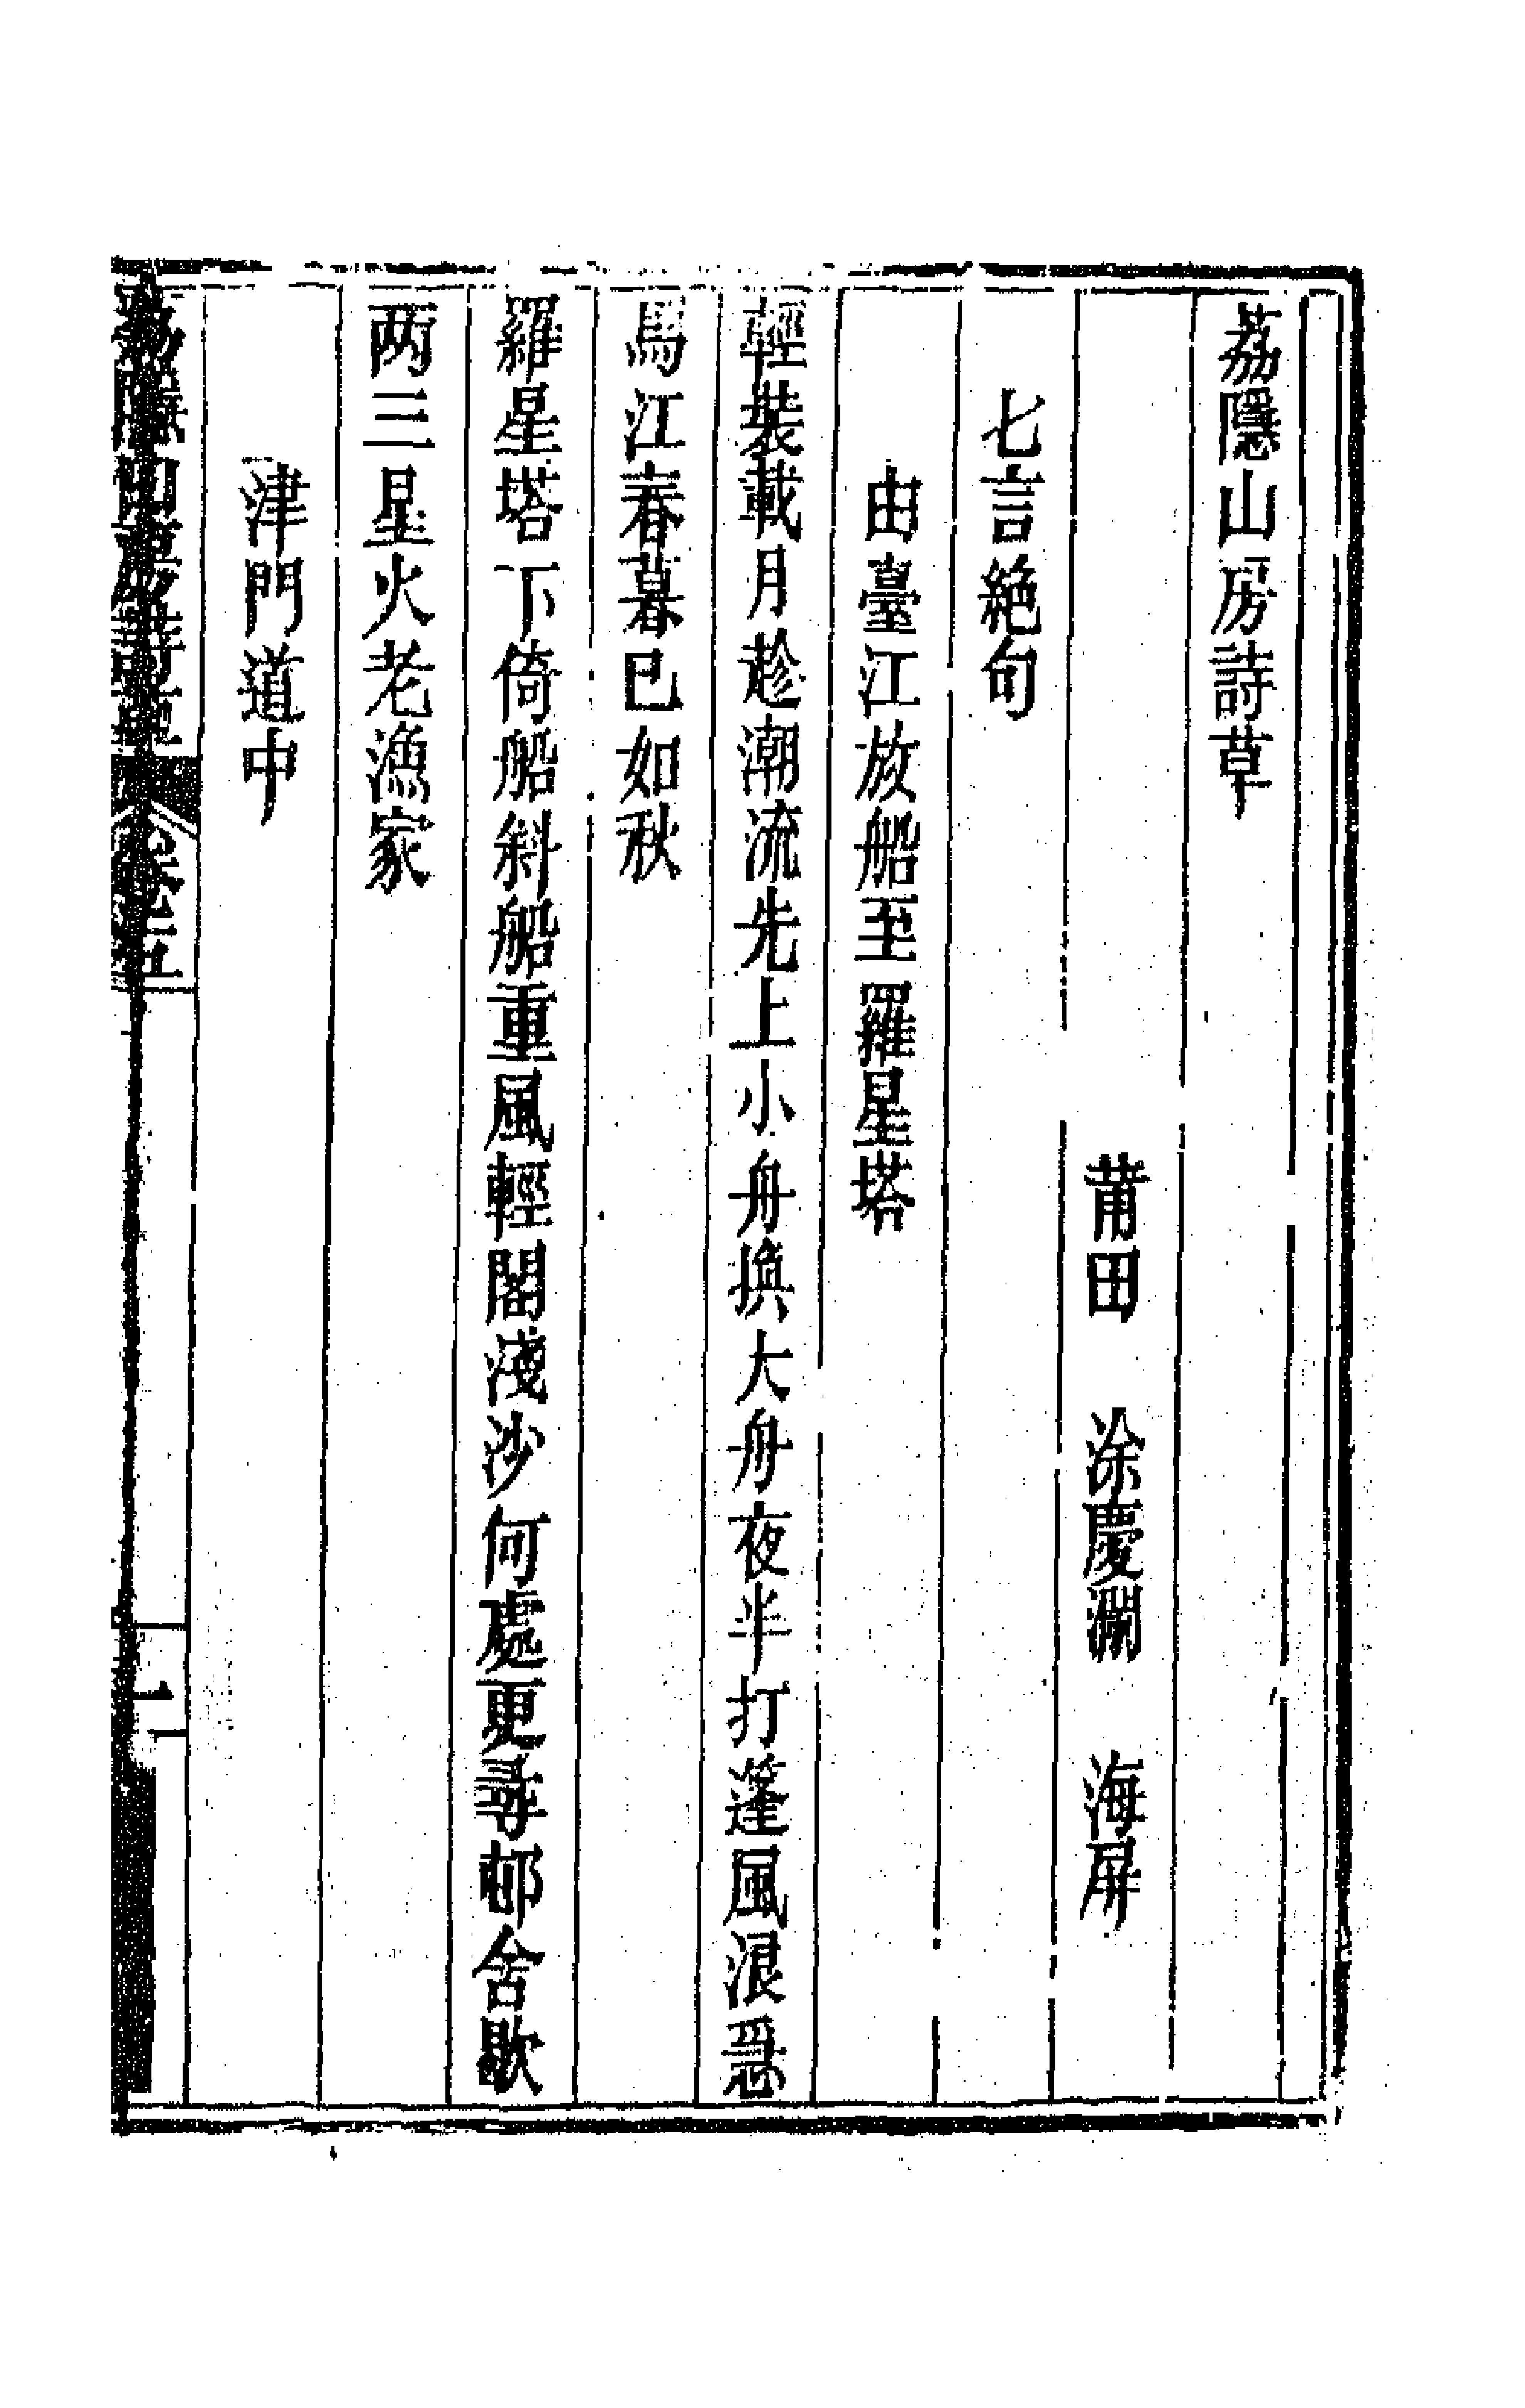 荔隱山房詩草
莆田 涂慶瀾 海屏
七言絶句
由臺江放船至羅星塔
輕裝載月趁潮流先上小舟換大舟夜半打篷風浪惡
馬江春暮已如秋
羅星塔下倚船斜船重風輕閣淺沙何處更尋邨舍歇
两三星火老漁家
津門道中
荔隱山房詩草 卷五 一